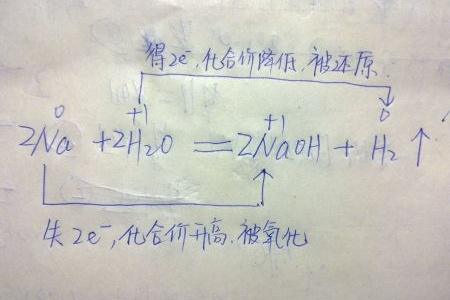 得2e⁻,化合价降低,被还原.
0 +1 +1 0
2Na + 2H₂O = 2NaOH + H₂↑
失2e⁻,化合价升高.被氧化